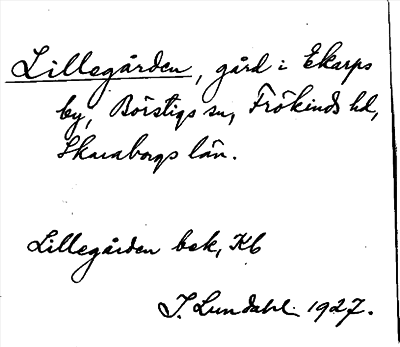 Lillegården, gård i Ekarps
by, Börstigs sn, Frökinds hd,
Skaraborgs län.
Lillegården bek, Kb
J. Lundahl 1927.